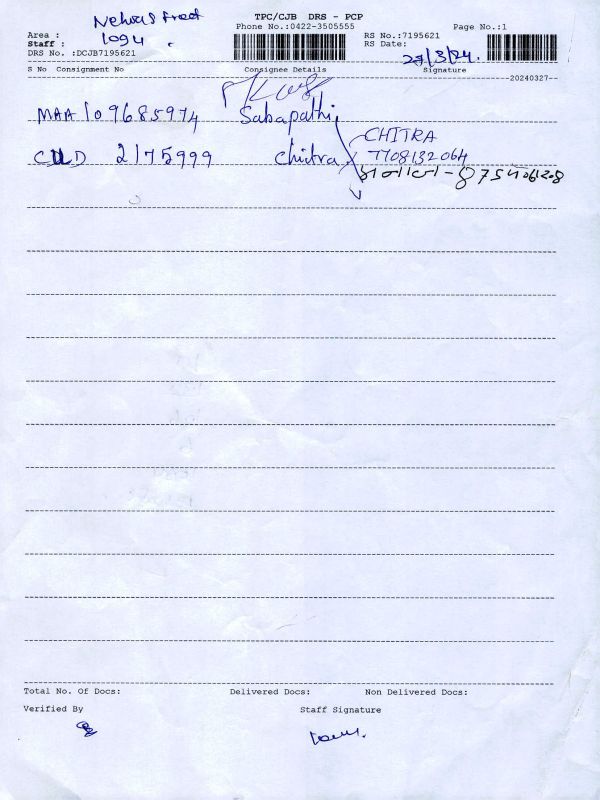 TPC/CJB DRS - PCP
Phone No.:0422-3505555
Page No.:1
Area :
Staff : 1094
DRS No. :DCJB7195621
RS No.:7195621
RS Date: 27/3/24.
S No Consignment No Consignee Details Signature
20240327
MAA 109685974 Sabapathi
CHITRA
CUD 2175999 Chitra 7708132064
Total No. Of Docs: Delivered Docs: Non Delivered Docs:
Verified By Staff Signature